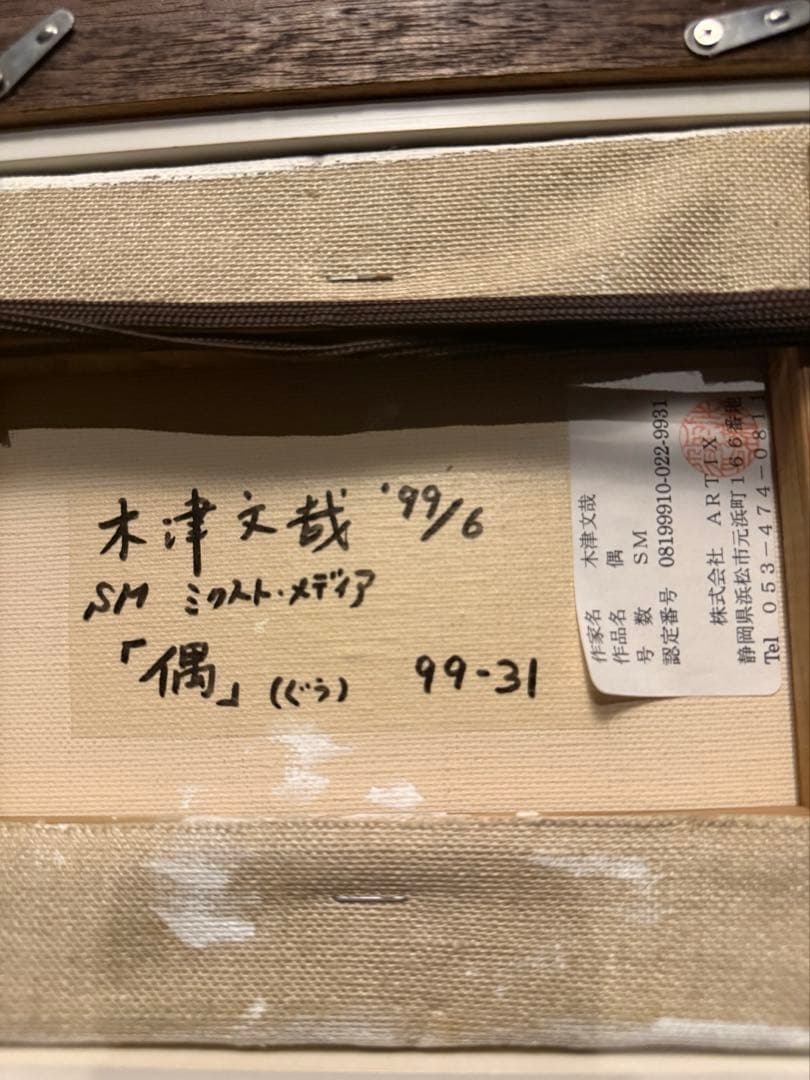 木津文哉 '99/6
SM ミクスト・メディア
「偶」(ぐう) 99-31
作家名 木津文哉
作品名 偶
号 数 SM
認定番号 08199910-022-9931
株式会社 ARTEX
静岡県浜松市元浜町166番地
Tel 053-474-0811